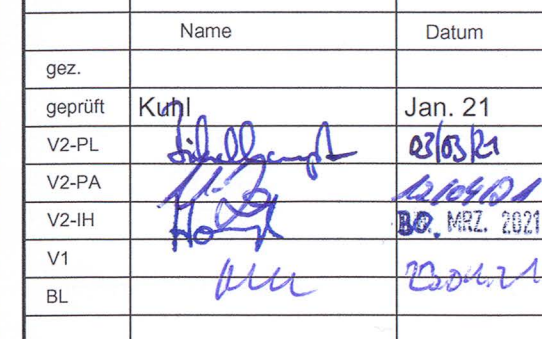 Name Datum
gez.
geprüft Kuhl Jan. 21
V2-PL 03/03/21
V2-PA 12/04/21
V2-IH 30. MRZ. 2021
V1
BL